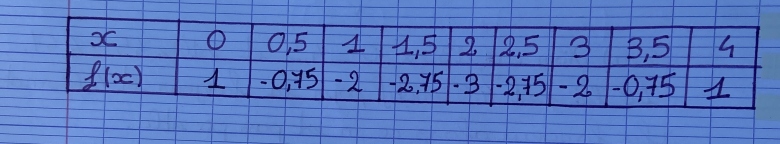 x 0 0,5 1 1,5 2 2,5 3 3,5 4
f(x) 1 -0,75 -2 -2,75 -3 -2,75 -2 -0,75 1